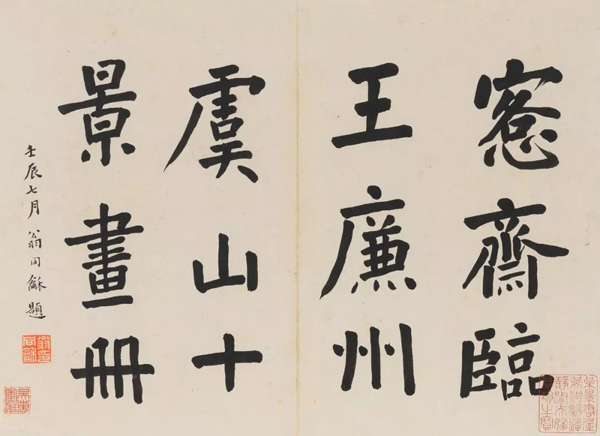 愙齋臨
王廉州
虞山十
景畫冊
壬辰七月翁同龢題